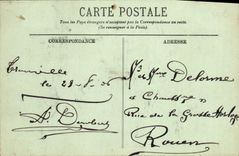 CARTE POSTALE
Tous les Pays étrangers n'acceptent pas la Correspondance au recto.
(Se renseigner à la Poste)
CORRESPONDANCE
ADRESSE
Trouville
le 28-8-06
Mr & Mme Delorme
Rue de la Grosse Horloge
Rouen